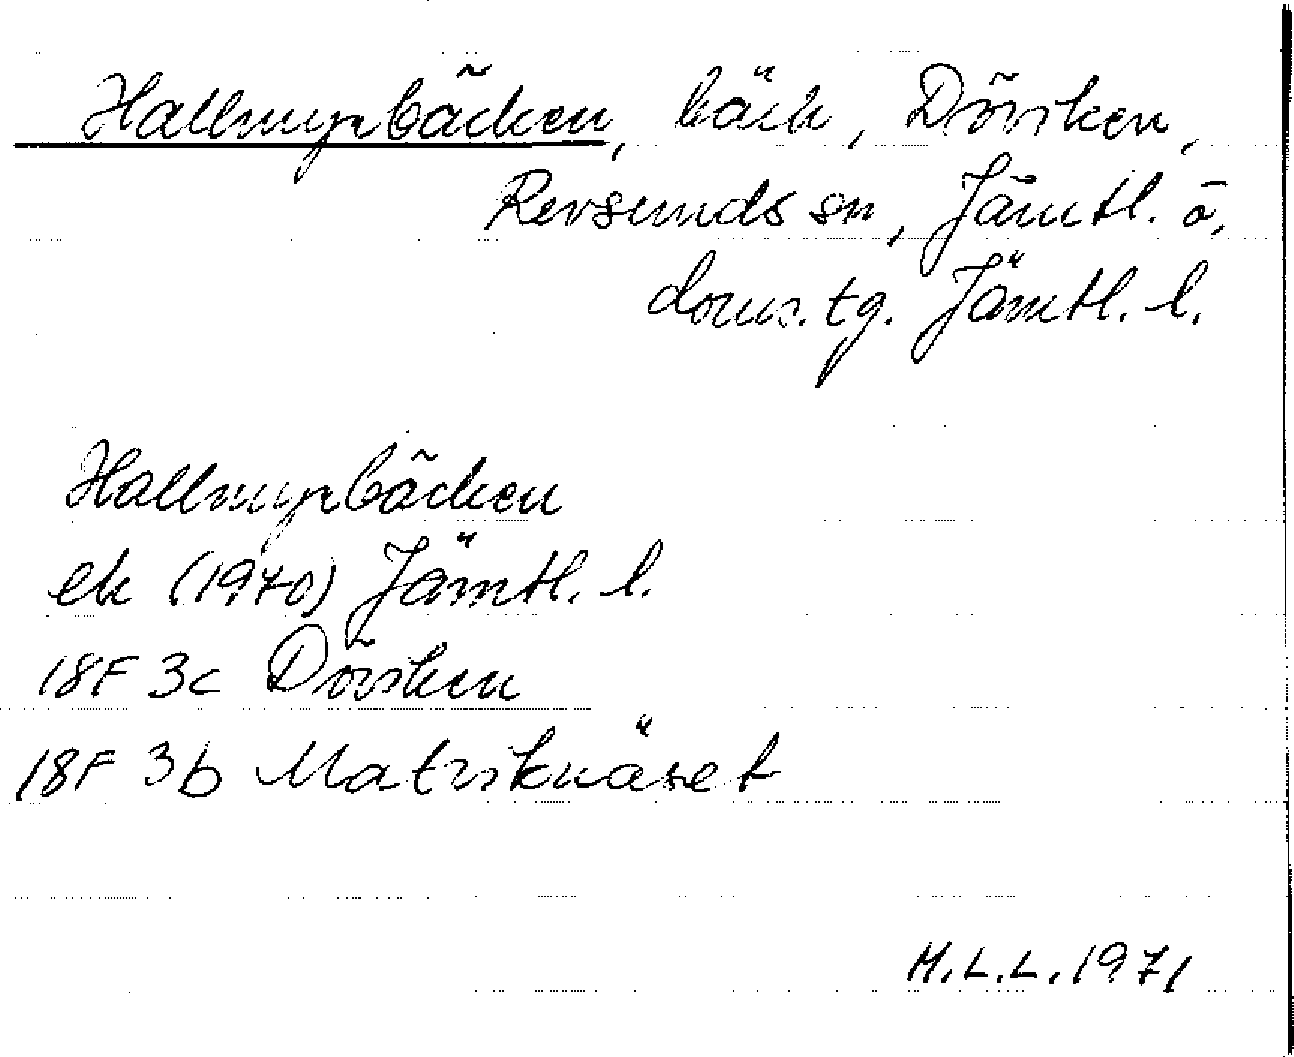 Hallmyrbäcken, bäck, Döviken,
Revsunds sn, Jämtl. ö.
doms. tg. Jämtl. l.
Hallmyrbäcken
ek (1970) Jämtl. l.
18F 3c Döviken
18F 3b Matviknäset
H.L.L. 1971